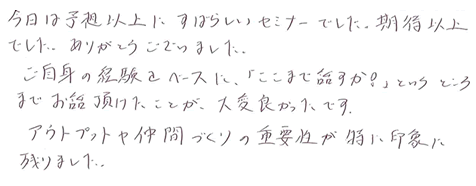 今日は予想以上にすばらしいセミナーでした。期待以上
でした。ありがとうございました。
ご自身の経験をベースに、「ここまで話すか!」というところ
までお話頂けたことが、大変良かったです。
アウトプットや仲間づくりの重要性が特に印象に
残りました。